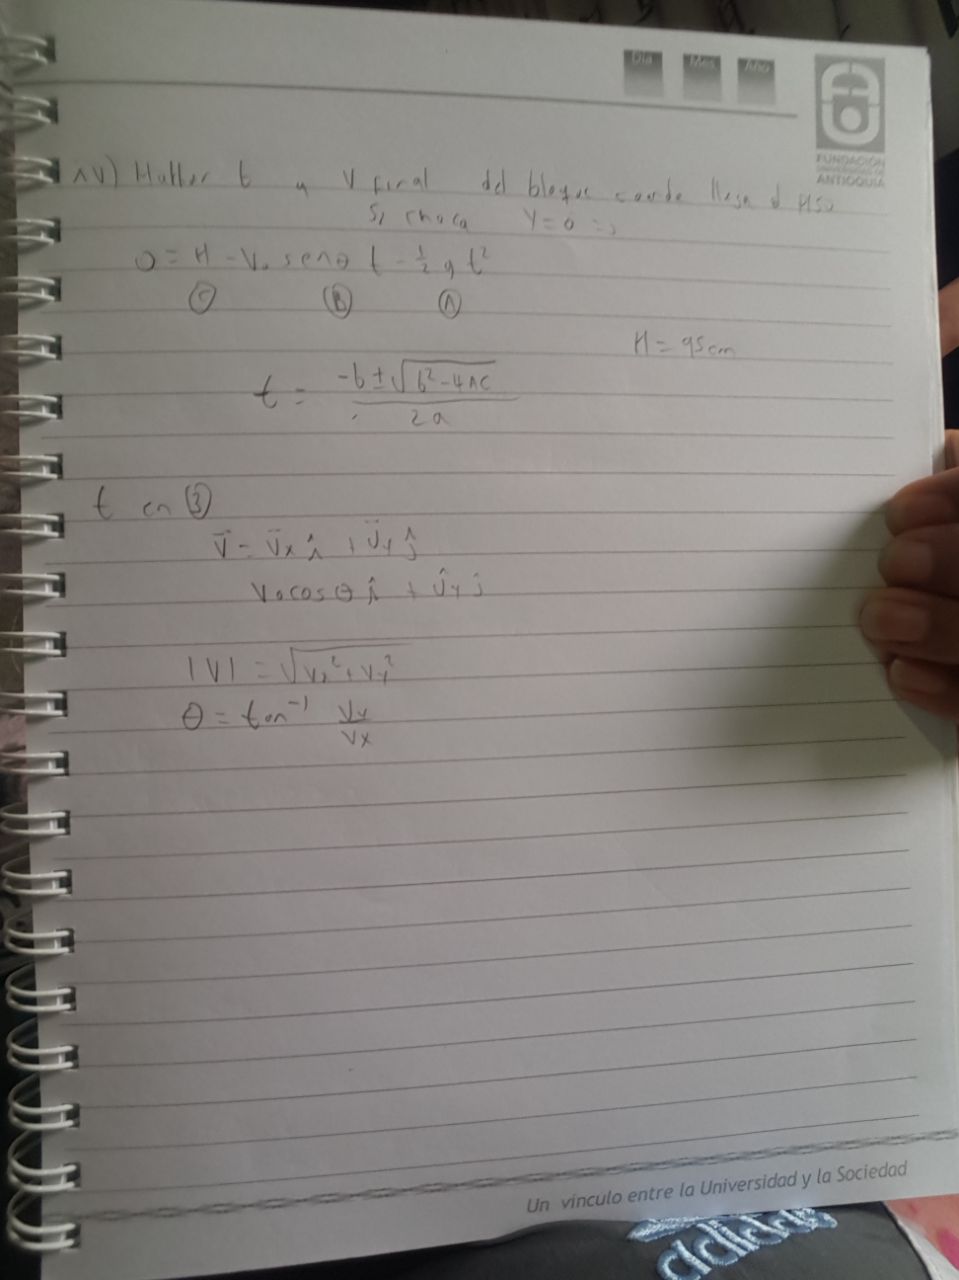 Dia Mes Año
FUNDACIÓN
UNIVERSIDAD DE
ANTIOQUIA
IV) Hallar t y V final del bloque cuando llega al piso
Si choca Y=0 =>
0 = H - V₀ senθ t - ½ g t²
Ⓒ Ⓑ Ⓐ
H = 95cm
t = (-b ± √(b² - 4AC)) / 2a
t en ③
V⃗ = V⃗x î + V⃗y ĵ
V₀ cosθ î + V⃗y ĵ
|V| = √(Vx² + Vy²)
θ = tan⁻¹ Vy/Vx
Un vínculo entre la Universidad y la Sociedad
adidas